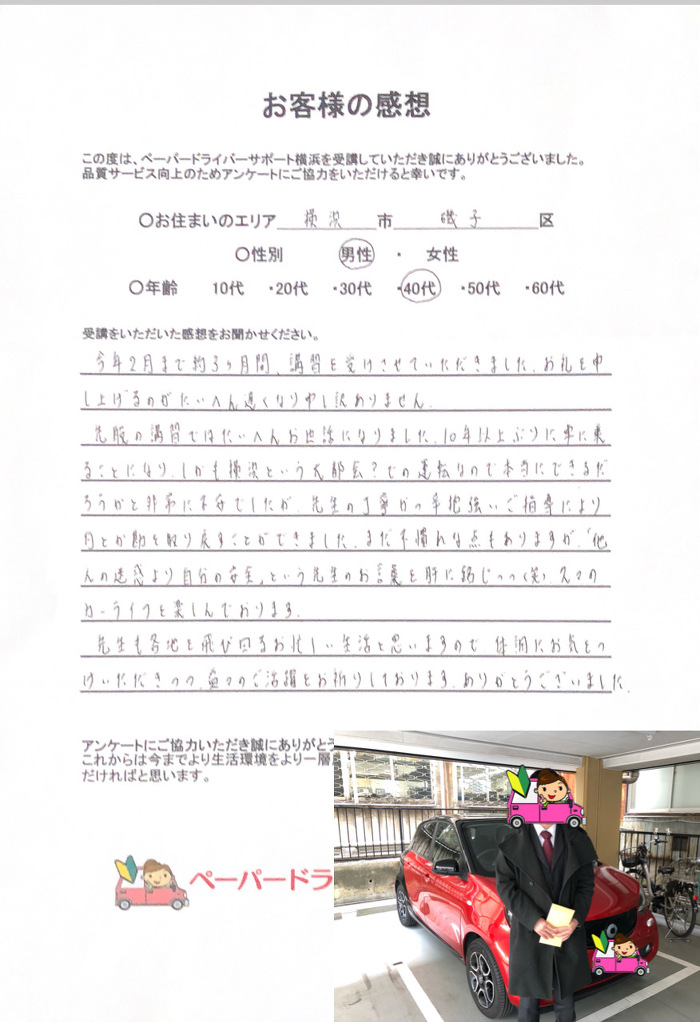 お客様の感想
この度は、ペーパードライバーサポート横浜を受講していただき誠にありがとうございました。
品質サービス向上のためアンケートにご協力をいただけると幸いです。
〇お住まいのエリア 横浜 市 磯子 区
〇性別 男性 ・ 女性
〇年齢 10代 ・20代 ・30代 ・40代 ・50代 ・60代
受講をいただいた感想をお聞かせください。
今年2月まで約3ヶ月間、講習を受けさせていただきました。お礼を申
し上げるのがたいへん遅くなり申し訳ありません。
先般の講習ではたいへんお世話になりました。10年以上ぶりに車に乗
ることになり、しかも横浜という大都会?での運転なので本当にできるだ
ろうかと非常に不安でしたが、先生の丁寧かつ手抱強いご指導により
何とか勘を取り戻すことができました。まだ不慣れな点もありますが、「他
人の迷惑より自分の安全」という先生のお言葉を肝に銘じつつ(笑)、久々の
カーライフを楽しんでおります。
先生も各地を飛び回るお忙しい生活と思いますので、体調にお気をつ
けいただきつつ、益々のご活躍をお祈りしております。ありがとうございました。
アンケートにご協力いただき誠にありがとう
これからは今までより生活環境をより一層
だければと思います。
ペーパードラ